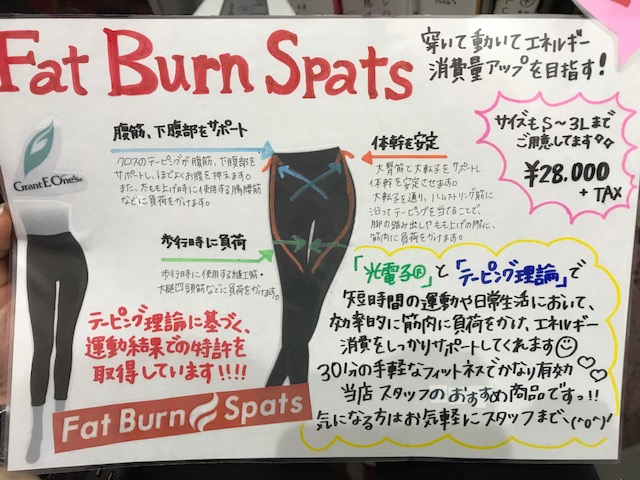 Fat Burn Spats
穿いて動いてエネルギー
消費量アップを目指す!
サイズもS~3Lまで
ご用意してます
¥28.000
+TAX
腹筋、下腹部をサポート
クロスのテーピングが腹筋、下腹部を
サポートし、ほどよくお腹を押さえます。
また、太もも上げ時に使用する腸腰筋
などに負荷をかけます。
体幹を安定
大臀筋と大転子をサポートし
体幹を安定させます。
大転子を通り、ハムストリング筋に
沿ってテーピングを当てることで、
脚の踏み出しやもも上げの際に、
筋肉に負荷をかけます。
Grant E One's®
歩行時に負荷
歩行時に使用する縫工筋・
大腿四頭筋などに負荷をかけます。
テーピング理論に基づく、
運動結果での特許を
取得しています!!!!
Fat Burn Spats
「光電子®」と「テーピング理論」で
短時間の運動や日常生活において、
効率的に筋肉に負荷をかけ、エネルギー
消費をしっかりサポートしてくれます
30分の手軽なフィットネスでかなり有効
当店スタッフのおすすめ商品ですっ!!
気になる方はお気軽にスタッフまで＼(^o^)/